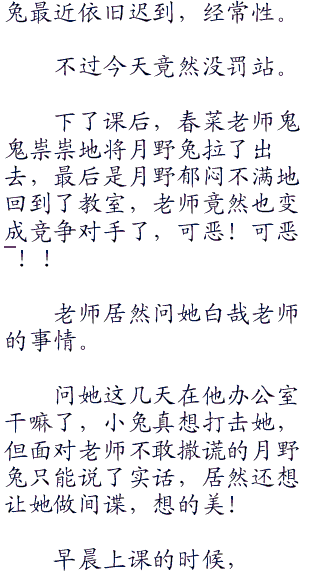 兔最近依旧迟到，经常性。
不过今天竟然没罚站。
下了课后，春菜老师鬼
鬼祟祟地将月野兔拉了出
去，最后是月野郁闷不满地
回到了教室，老师竟然也变
成竞争对手了，可恶！可恶
！！
老师居然问她白哉老师
的事情。
问她这几天在他办公室
干嘛了，小兔真想打击她，
但面对老师不敢撒谎的月野
兔只能说了实话，居然还想
让她做间谍，想的美！
早晨上课的时候，